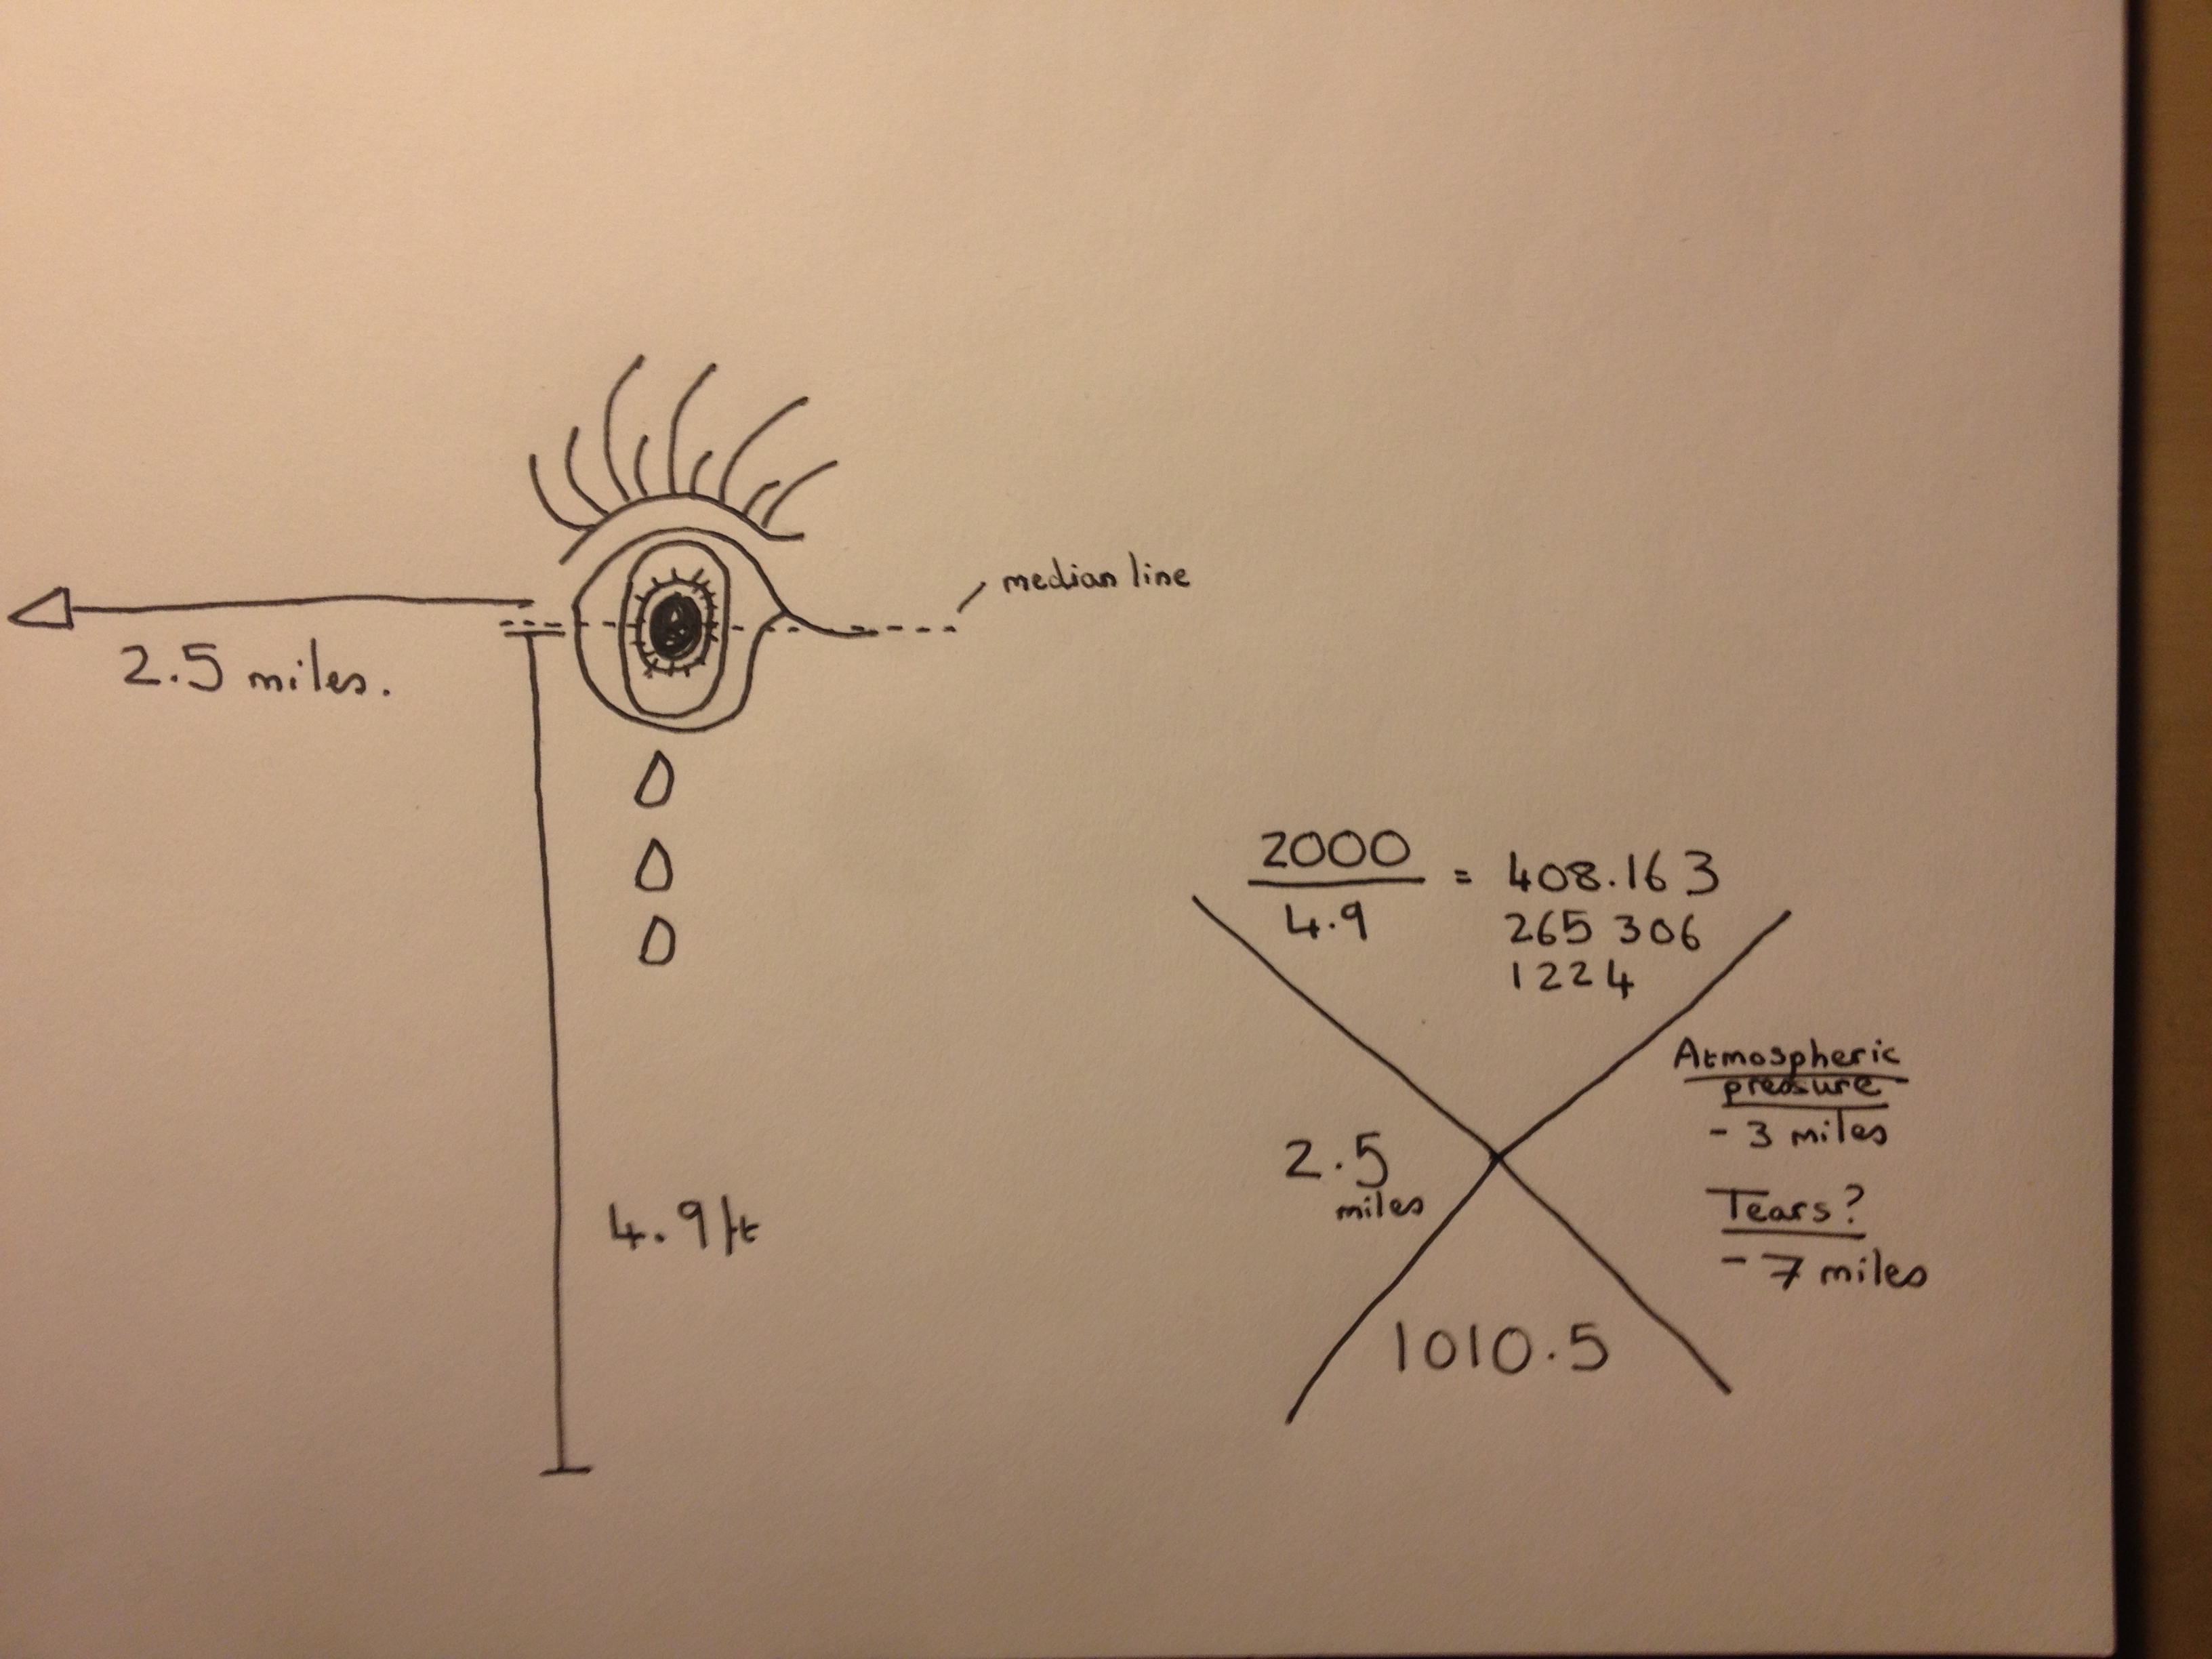 median line
2.5 miles.
4.9ft
2000
4.9
= 408.163
265 306
1224
Atmospheric
pressure
- 3 miles
Tears?
- 7 miles
2.5
miles
1010.5